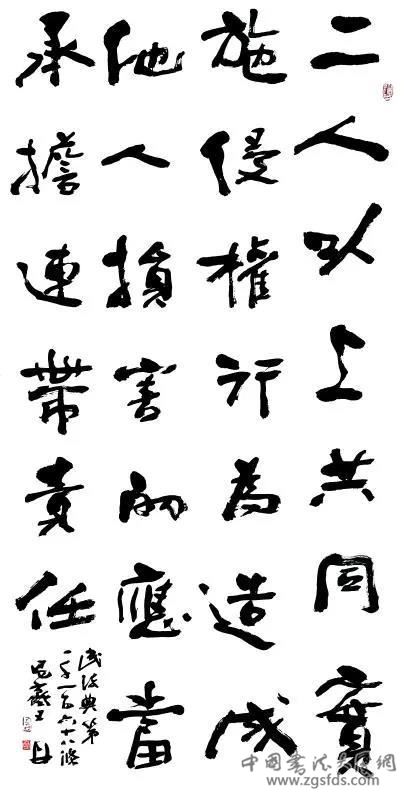 二人以上共同實
施侵權行為造成
他人損害的應當
承擔連帶責任
民法典第
一千一百六十八條
中国书法发展網
www.zgsfds.com